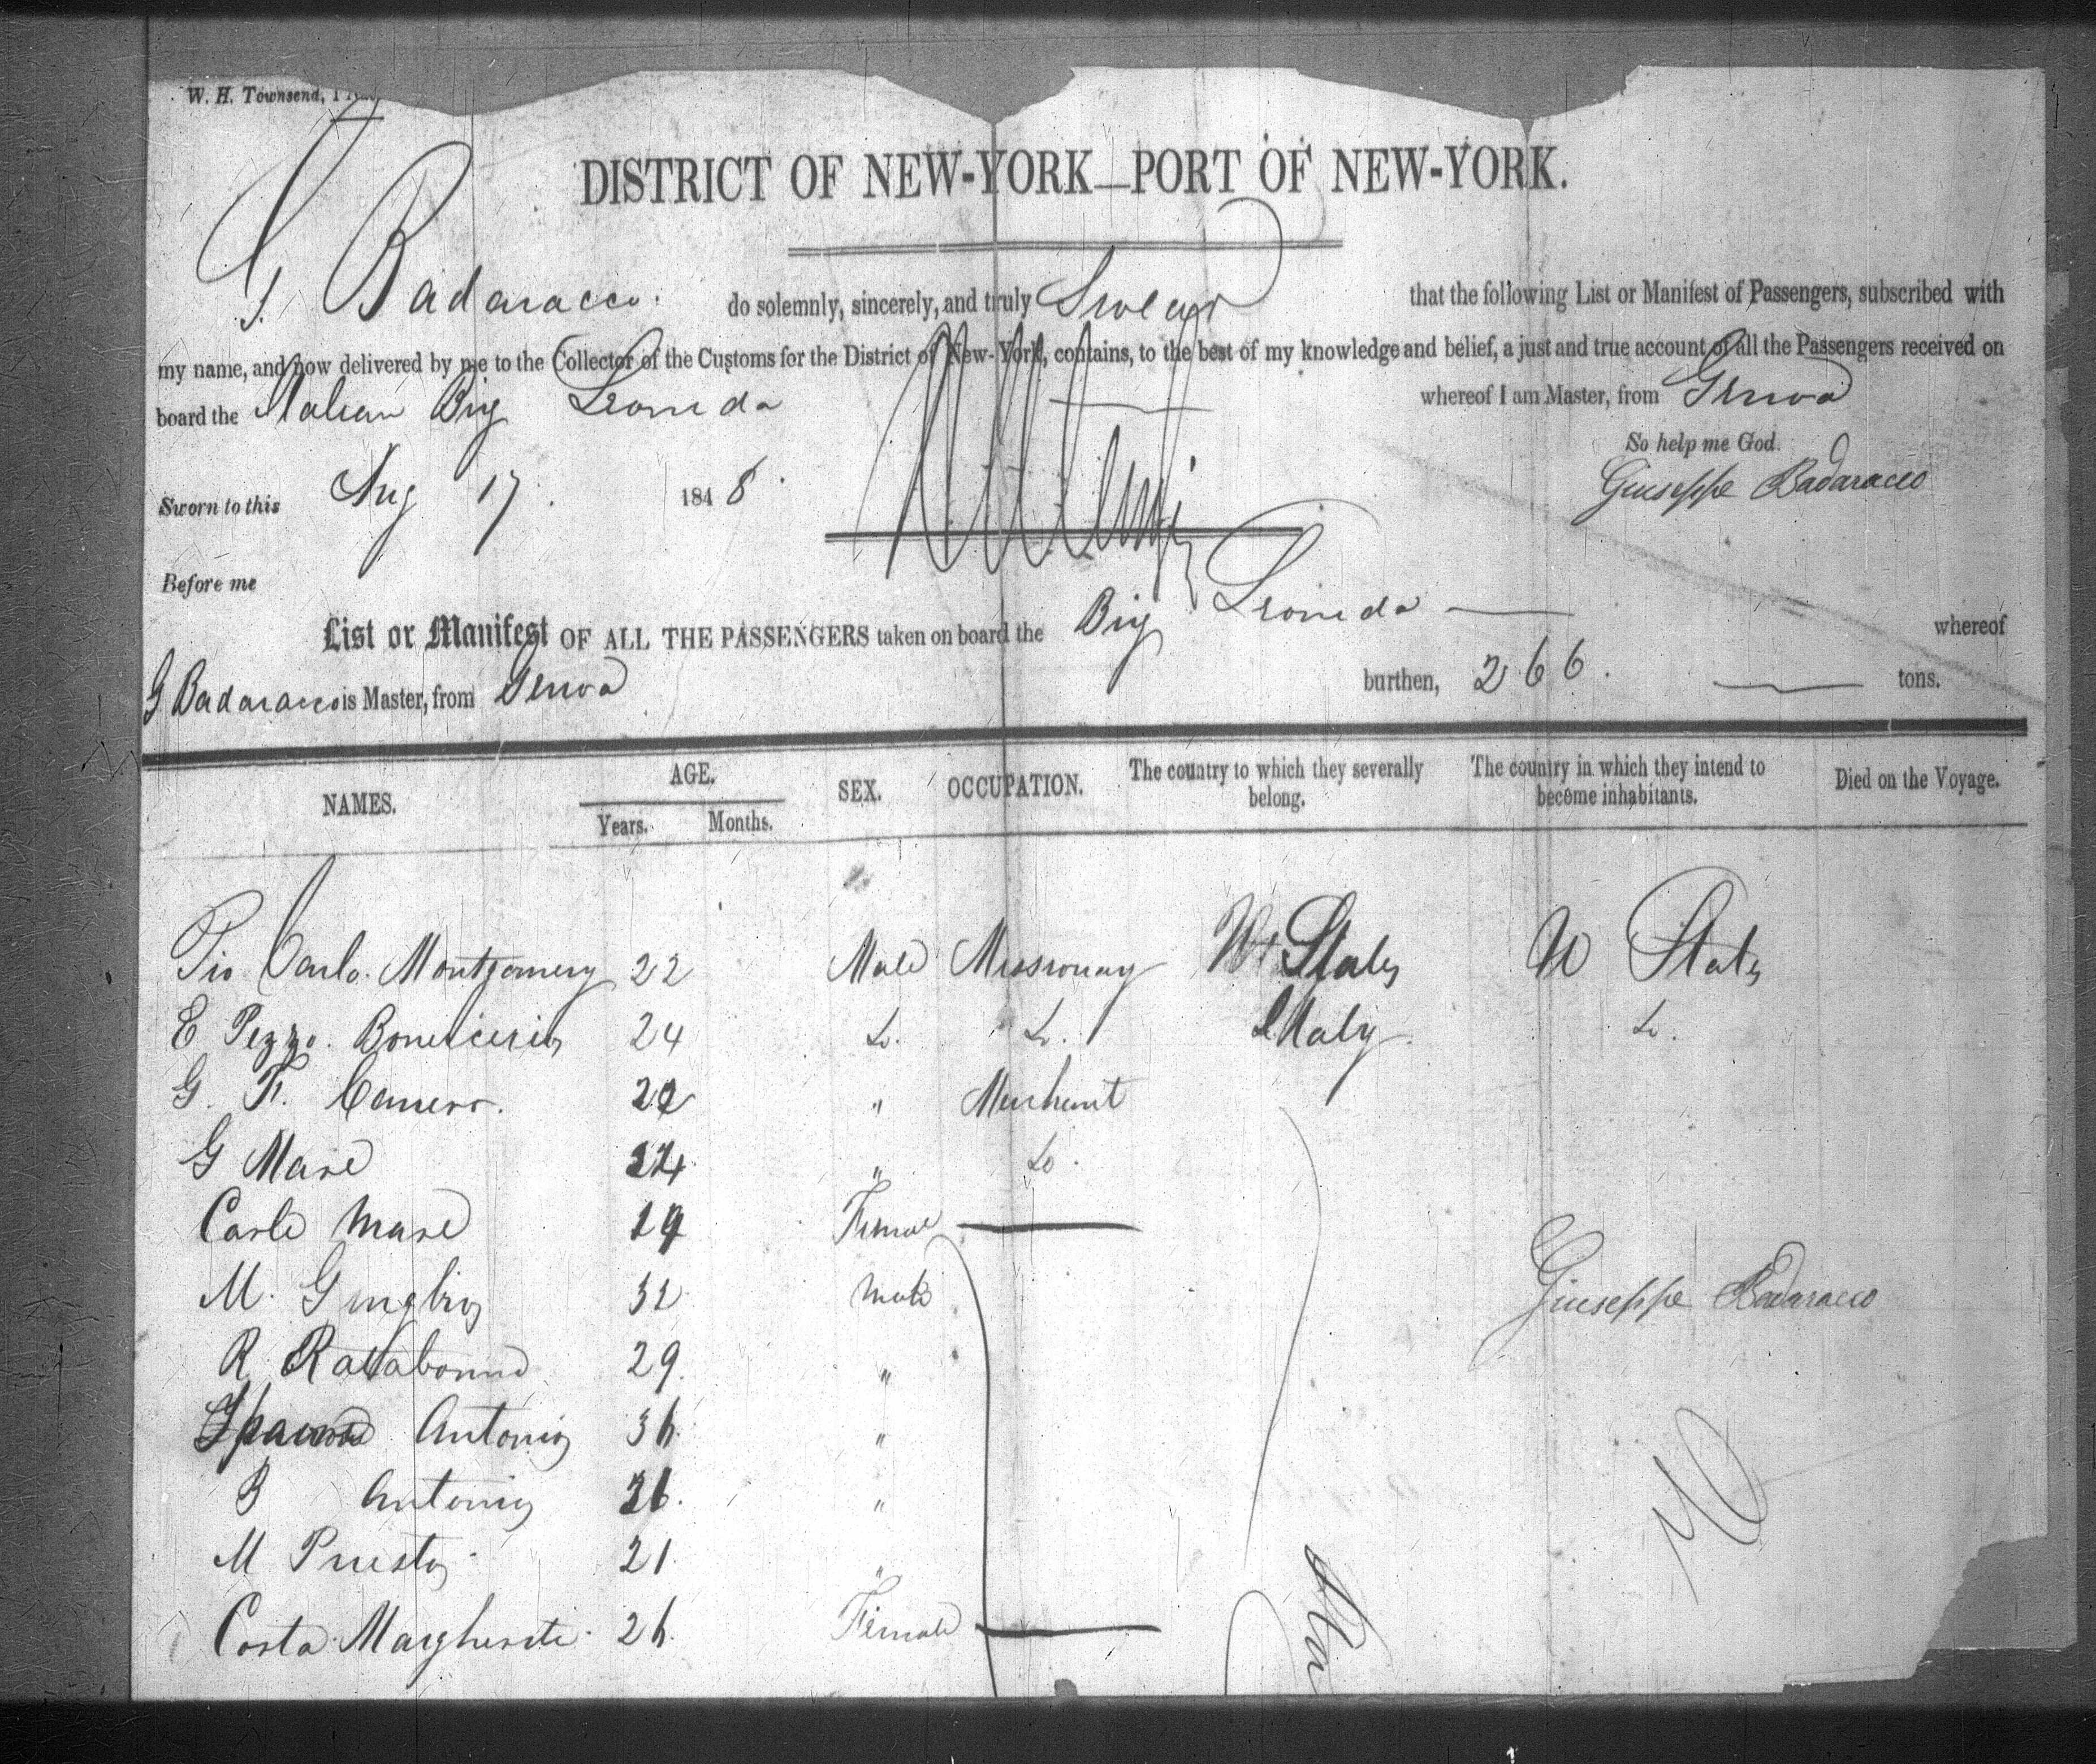 W. H. Townsend,
DISTRICT OF NEW-YORK—PORT OF NEW-YORK.
G. Badaracco. do solemnly, sincerely, and truly Swear that the following List or Manifest of Passengers, subscribed with
my name, and now delivered by me to the Collector of the Customs for the District of New-York, contains, to the best of my knowledge and belief, a just and true account of all the Passengers received on
board the Italian Brig Leonida whereof I am Master, from Genoa
So help me God.
Sworn to this Aug 17. 1848. Giuseppe Badaracco
Before me
List or Manifest OF ALL THE PASSENGERS taken on board the Brig Leonida whereof
G Badaracco is Master, from Genoa burthen, 266. tons.
NAMES. AGE. Years. Months. SEX. OCCUPATION. The country to which they severally belong. The country in which they intend to become inhabitants. Died on the Voyage.
Pio Carlo. Montgomery 22 Male Missionary U States U States
E Pezzo. 24 Do. Do. Italy Do.
G. F. 22 " Merchant
G Mase 24 " Do.
Carle Mase 19 Female
M. 32 Male Giuseppe Badaracco
R. 29. "
Antonio 36. "
B Antonio 26. "
M 21. "
Costa Margherite. 26. Female